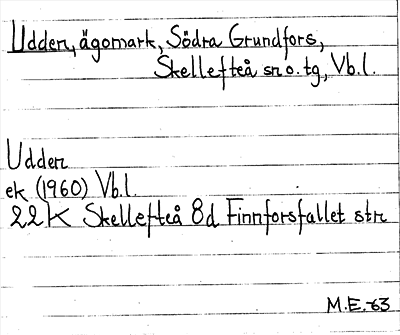 Udden, ägomark, Södra Grundfors,
Skellefteå sn o. tg, Vb.l.
Udden
ek (1960) Vb.l.
22K Skellefteå 8d Finnforsfallet str
M.E.-63